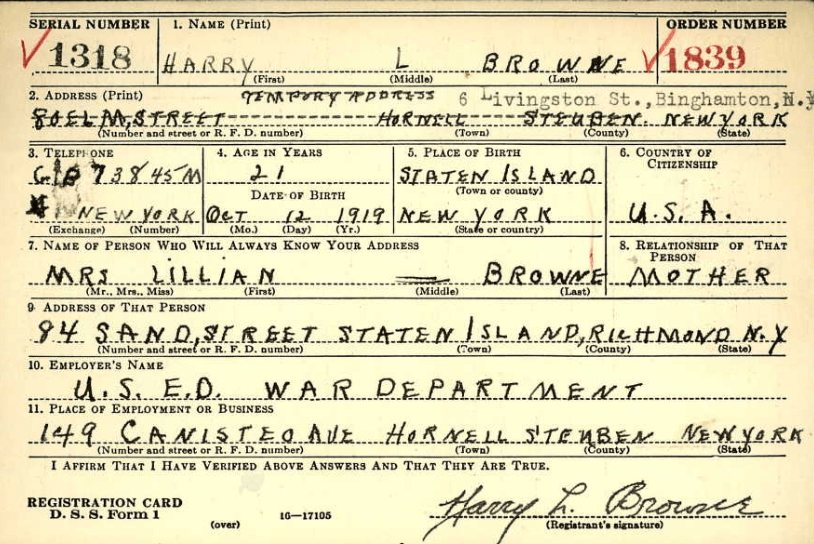 SERIAL NUMBER 1. NAME (Print) ORDER NUMBER
1318 HARRY L BROWNE 1839
(First) (Middle) (Last)
2. ADDRESS (Print) TEMPORY ADDRESS 6 Livingston St., Binghamton, N.Y
80 ELM STREET HORNELL STEUBEN NEW YORK
(Number and street or R. F. D. number) (Town) (County) (State)
3. TELEPHONE 4. AGE IN YEARS 5. PLACE OF BIRTH 6. COUNTRY OF CITIZENSHIP
73845M 21 STATEN ISLAND
(Town or county)
DATE OF BIRTH
NEW YORK OCT 12 1919 NEW YORK U.S.A.
(Exchange) (Number) (Mo.) (Day) (Yr.) (State or country)
7. NAME OF PERSON WHO WILL ALWAYS KNOW YOUR ADDRESS 8. RELATIONSHIP OF THAT PERSON
MRS LILLIAN — BROWNE MOTHER
(Mr., Mrs., Miss) (First) (Middle) (Last)
9. ADDRESS OF THAT PERSON
84 SAND, STREET STATEN ISLAND, RICHMOND N.Y
(Number and street or R. F. D. number) (Town) (County) (State)
10. EMPLOYER'S NAME
U.S. E.D. WAR DEPARTMENT
11. PLACE OF EMPLOYMENT OR BUSINESS
149 CANISTEO AVE HORNELL STEUBEN NEW YORK
(Number and street or R. F. D. number) (Town) (County) (State)
I AFFIRM THAT I HAVE VERIFIED ABOVE ANSWERS AND THAT THEY ARE TRUE.
REGISTRATION CARD
D. S. S. Form 1 16—17105 Harry L. Browne
(over) (Registrant's signature)